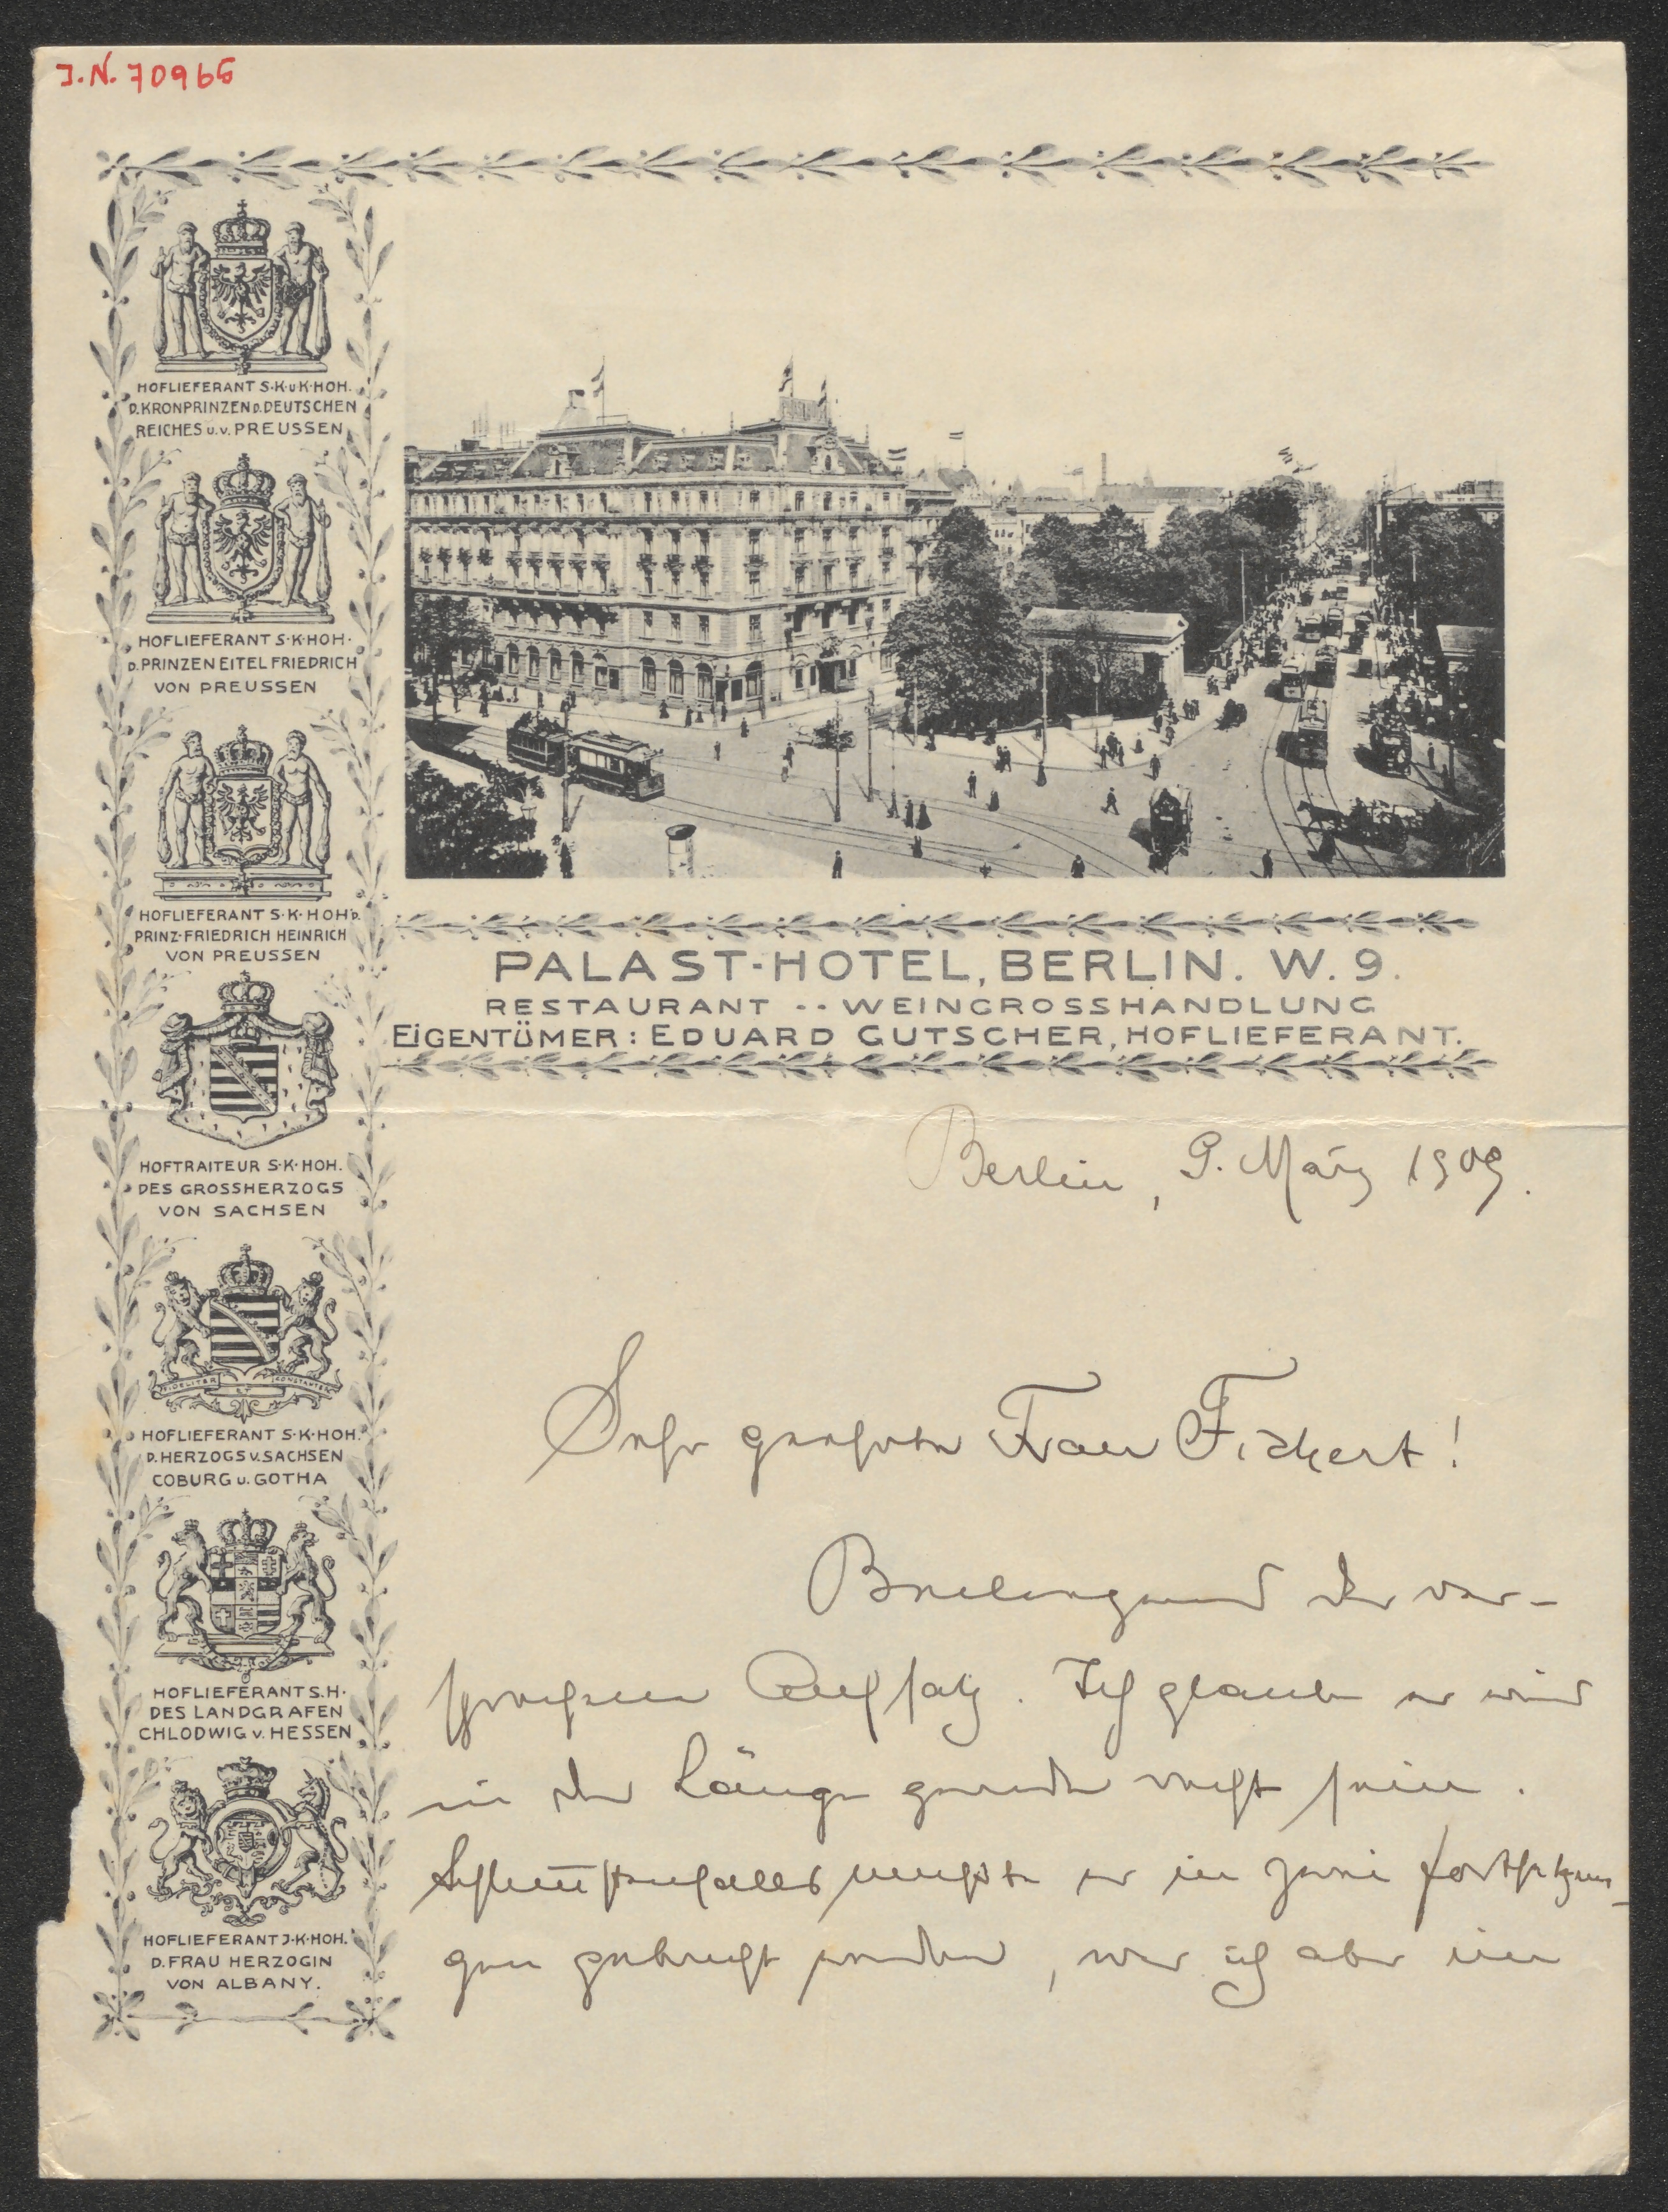 J.N. 70965
HOFLIEFERANT S·K·u·K·HOH.
D.KRONPRINZEN D.DEUTSCHEN
REICHES u.v.PREUSSEN
HOFLIEFERANT S·K·HOH·
D.PRINZEN EITEL FRIEDRICH
VON PREUSSEN
HOFLIEFERANT S·K·HOH D.
PRINZ·FRIEDRICH HEINRICH
VON PREUSSEN
HOFTRAITEUR S·K·HOH.
DES GROSSHERZOGS
VON SACHSEN
FIDELITER ET CONSTANTER
HOFLIEFERANT S·K·HOH.
D.HERZOGS v.SACHSEN
COBURG u.GOTHA
HOFLIEFERANT S.H.
DES LANDGRAFEN
CHLODWIG v.HESSEN
HOFLIEFERANT J·K·HOH.
D.FRAU HERZOGIN
VON ALBANY.
PALAST-HOTEL, BERLIN. W. 9.
RESTAURANT -- WEINGROSSHANDLUNG
EIGENTÜMER: EDUARD GUTSCHER, HOFLIEFERANT.
Berlin, 9. März 1909.
Sehr geehrte Frau Fickert!
Beiliegend der ver-
sprochene Aufsatz. Ich glaube er wird
in der Länge gerade recht sein.
Schlimmstenfalls müsste er in zwei Fortsetzun-
gen gebracht werden, was ich aber im